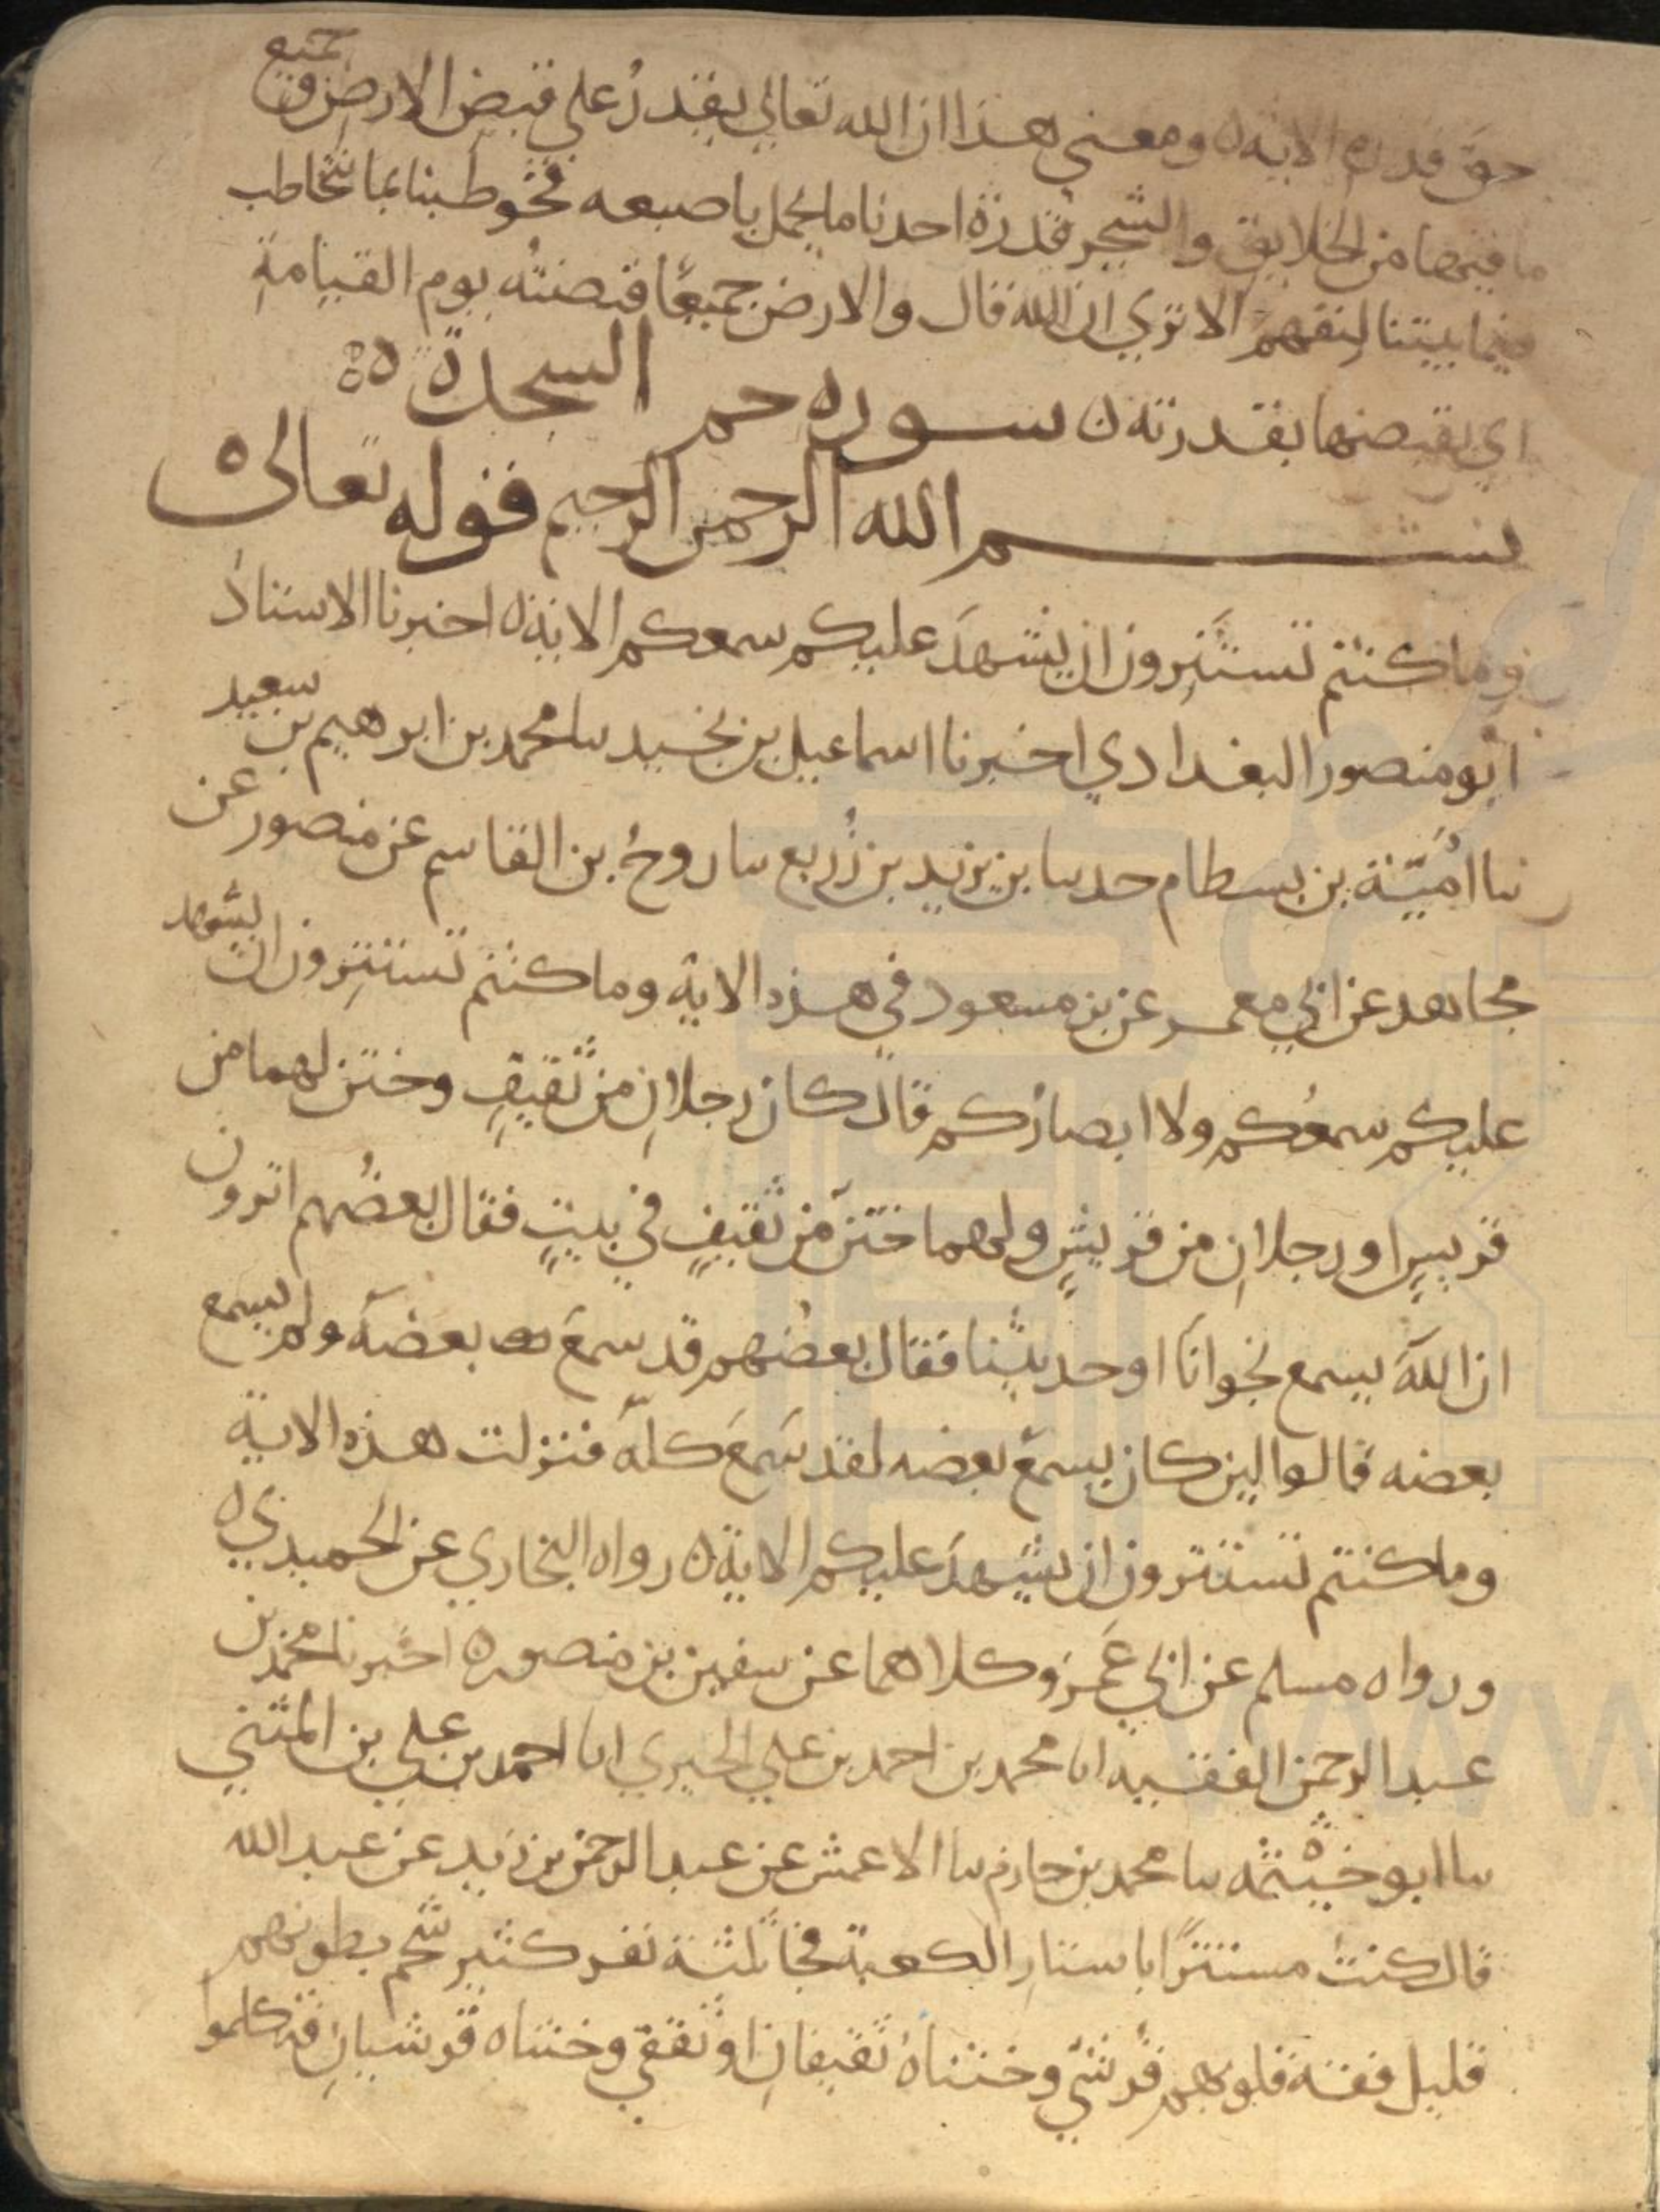 حق قدره الاية ومعنى هذا ان الله تعالى يقدر على قبض الارض وجميع
ما فيها من الخلايق والشجر قدرة احدنا ما يحمل باصبعه فخوطبنا بما نتخاطب
فيما بيننا لنفهم الا تري ان الله قال والارض جميعًا قبضته يوم القيامة
اي يقبضها بقدرته سوره حم السجدة
بسم الله الرحمن الرحيم قوله تعالى
وما كنتم تستترون ان يشهد عليكم سمعكم الاية اخبرنا الاستاذ
ابو منصور البغدادي اخبرنا اسماعيل بن نجيد سا محمد بن ابرهيم بن سعيد
سا اميّة بن بسطام حدسا يزيد بن زريع سا روح بن القاسم عن منصور عن
مجاهد عن ابي معمر عن بن مسعود في هذه الاية وما كنتم تستترون ان يشهد
عليكم سمعكم ولا ابصاركم قال كان رجلانِ من ثقيفٍ وختن لهما من
قريسٍ او رجلانِ من قريشٍ ولهما ختنٌ من ثقيفٍ في بيتٍ فقال بعضُهم اترون
ان الله يسمع نجوانا او حديثنا فقال بعضهم قد سمع بعضه ولم يسمع
بعضه قالوا لين كان يسمع بعضه لقد سَمعَ كلّه فنزلت هذه الاية
وما كنتم تستترون ان يشهدَ عليكم الاية رواه البخاري عن الحميدي
ورواه مسلم عن ابي عَمرو كلاهما عن سفين بن منصور اخبرنا محمد بن
عبد الرحمن الفقيه انا محمد بن احمد بن علي الحيري انا احمد بن علي بن المثنى
سا ابو خيثمه سا محمد بن حازم سا الاعمش عن عبد الرحمن بن زيد عن عبد الله
قال كنتُ مستترًا باستارِ الكعبة فجا ثلثة نفر كثير شحم بطونهم
قليل فقه قلوبهم قرشي وختناه ثقيفان او ثقفي وختناه قرشيان فتكلموا